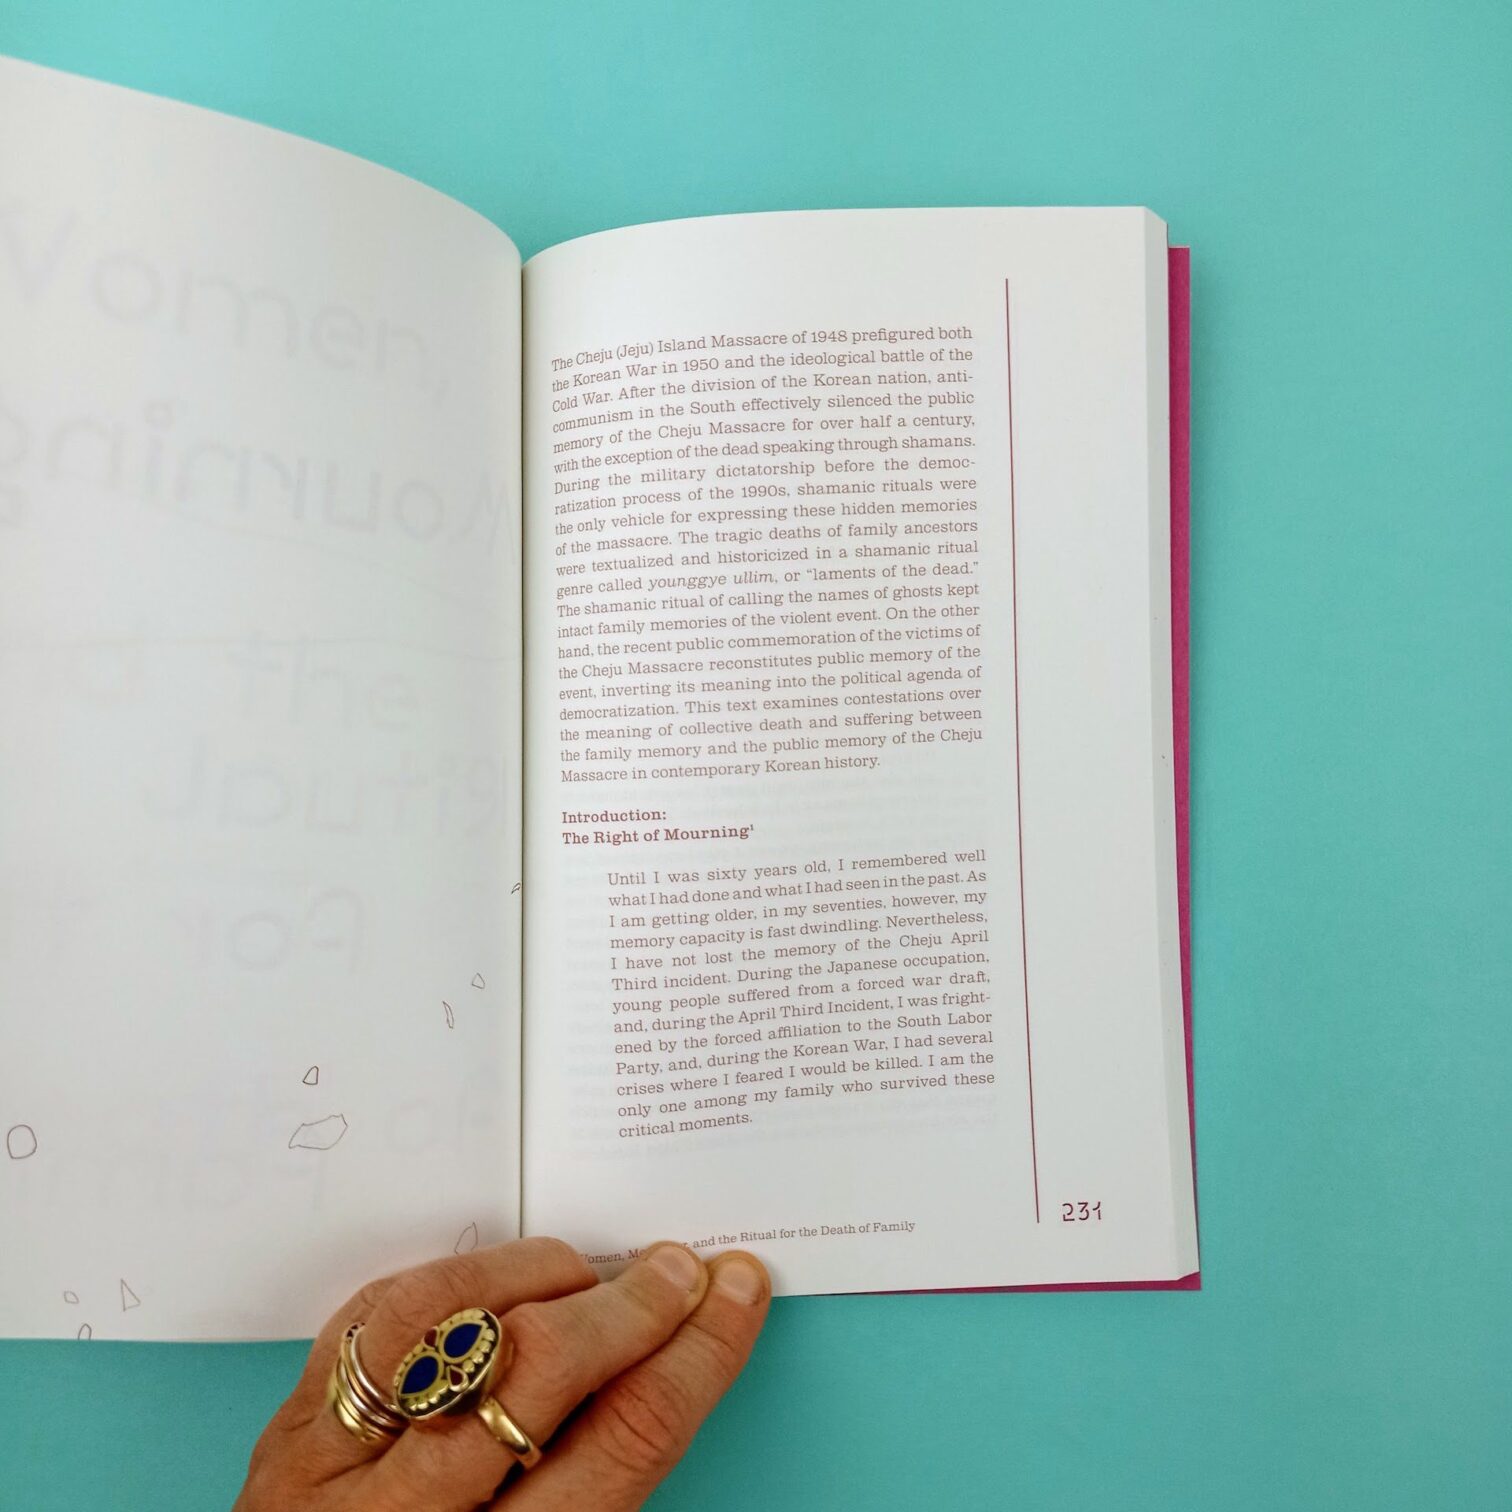 The Cheju (Jeju) Island Massacre of 1948 prefigured both
the Korean War in 1950 and the ideological battle of the
Cold War. After the division of the Korean nation, anti-
communism in the South effectively silenced the public
memory of the Cheju Massacre for over half a century,
with the exception of the dead speaking through shamans.
During the military dictatorship before the democ-
ratization process of the 1990s, shamanic rituals were
the only vehicle for expressing these hidden memories
of the massacre. The tragic deaths of family ancestors
were textualized and historicized in a shamanic ritual
genre called younggye ullim, or “laments of the dead.”
The shamanic ritual of calling the names of ghosts kept
intact family memories of the violent event. On the other
hand, the recent public commemoration of the victims of
the Cheju Massacre reconstitutes public memory of the
event, inverting its meaning into the political agenda of
democratization. This text examines contestations over
the meaning of collective death and suffering between
the family memory and the public memory of the Cheju
Massacre in contemporary Korean history.
Introduction:
The Right of Mourning¹
Until I was sixty years old, I remembered well
what I had done and what I had seen in the past. As
I am getting older, in my seventies, however, my
memory capacity is fast dwindling. Nevertheless,
I have not lost the memory of the Cheju April
Third incident. During the Japanese occupation,
young people suffered from a forced war draft,
and, during the April Third Incident, I was fright-
ened by the forced affiliation to the South Labor
Party, and, during the Korean War, I had several
crises where I feared I would be killed. I am the
only one among my family who survived these
critical moments.
and the Ritual for the Death of Family
231